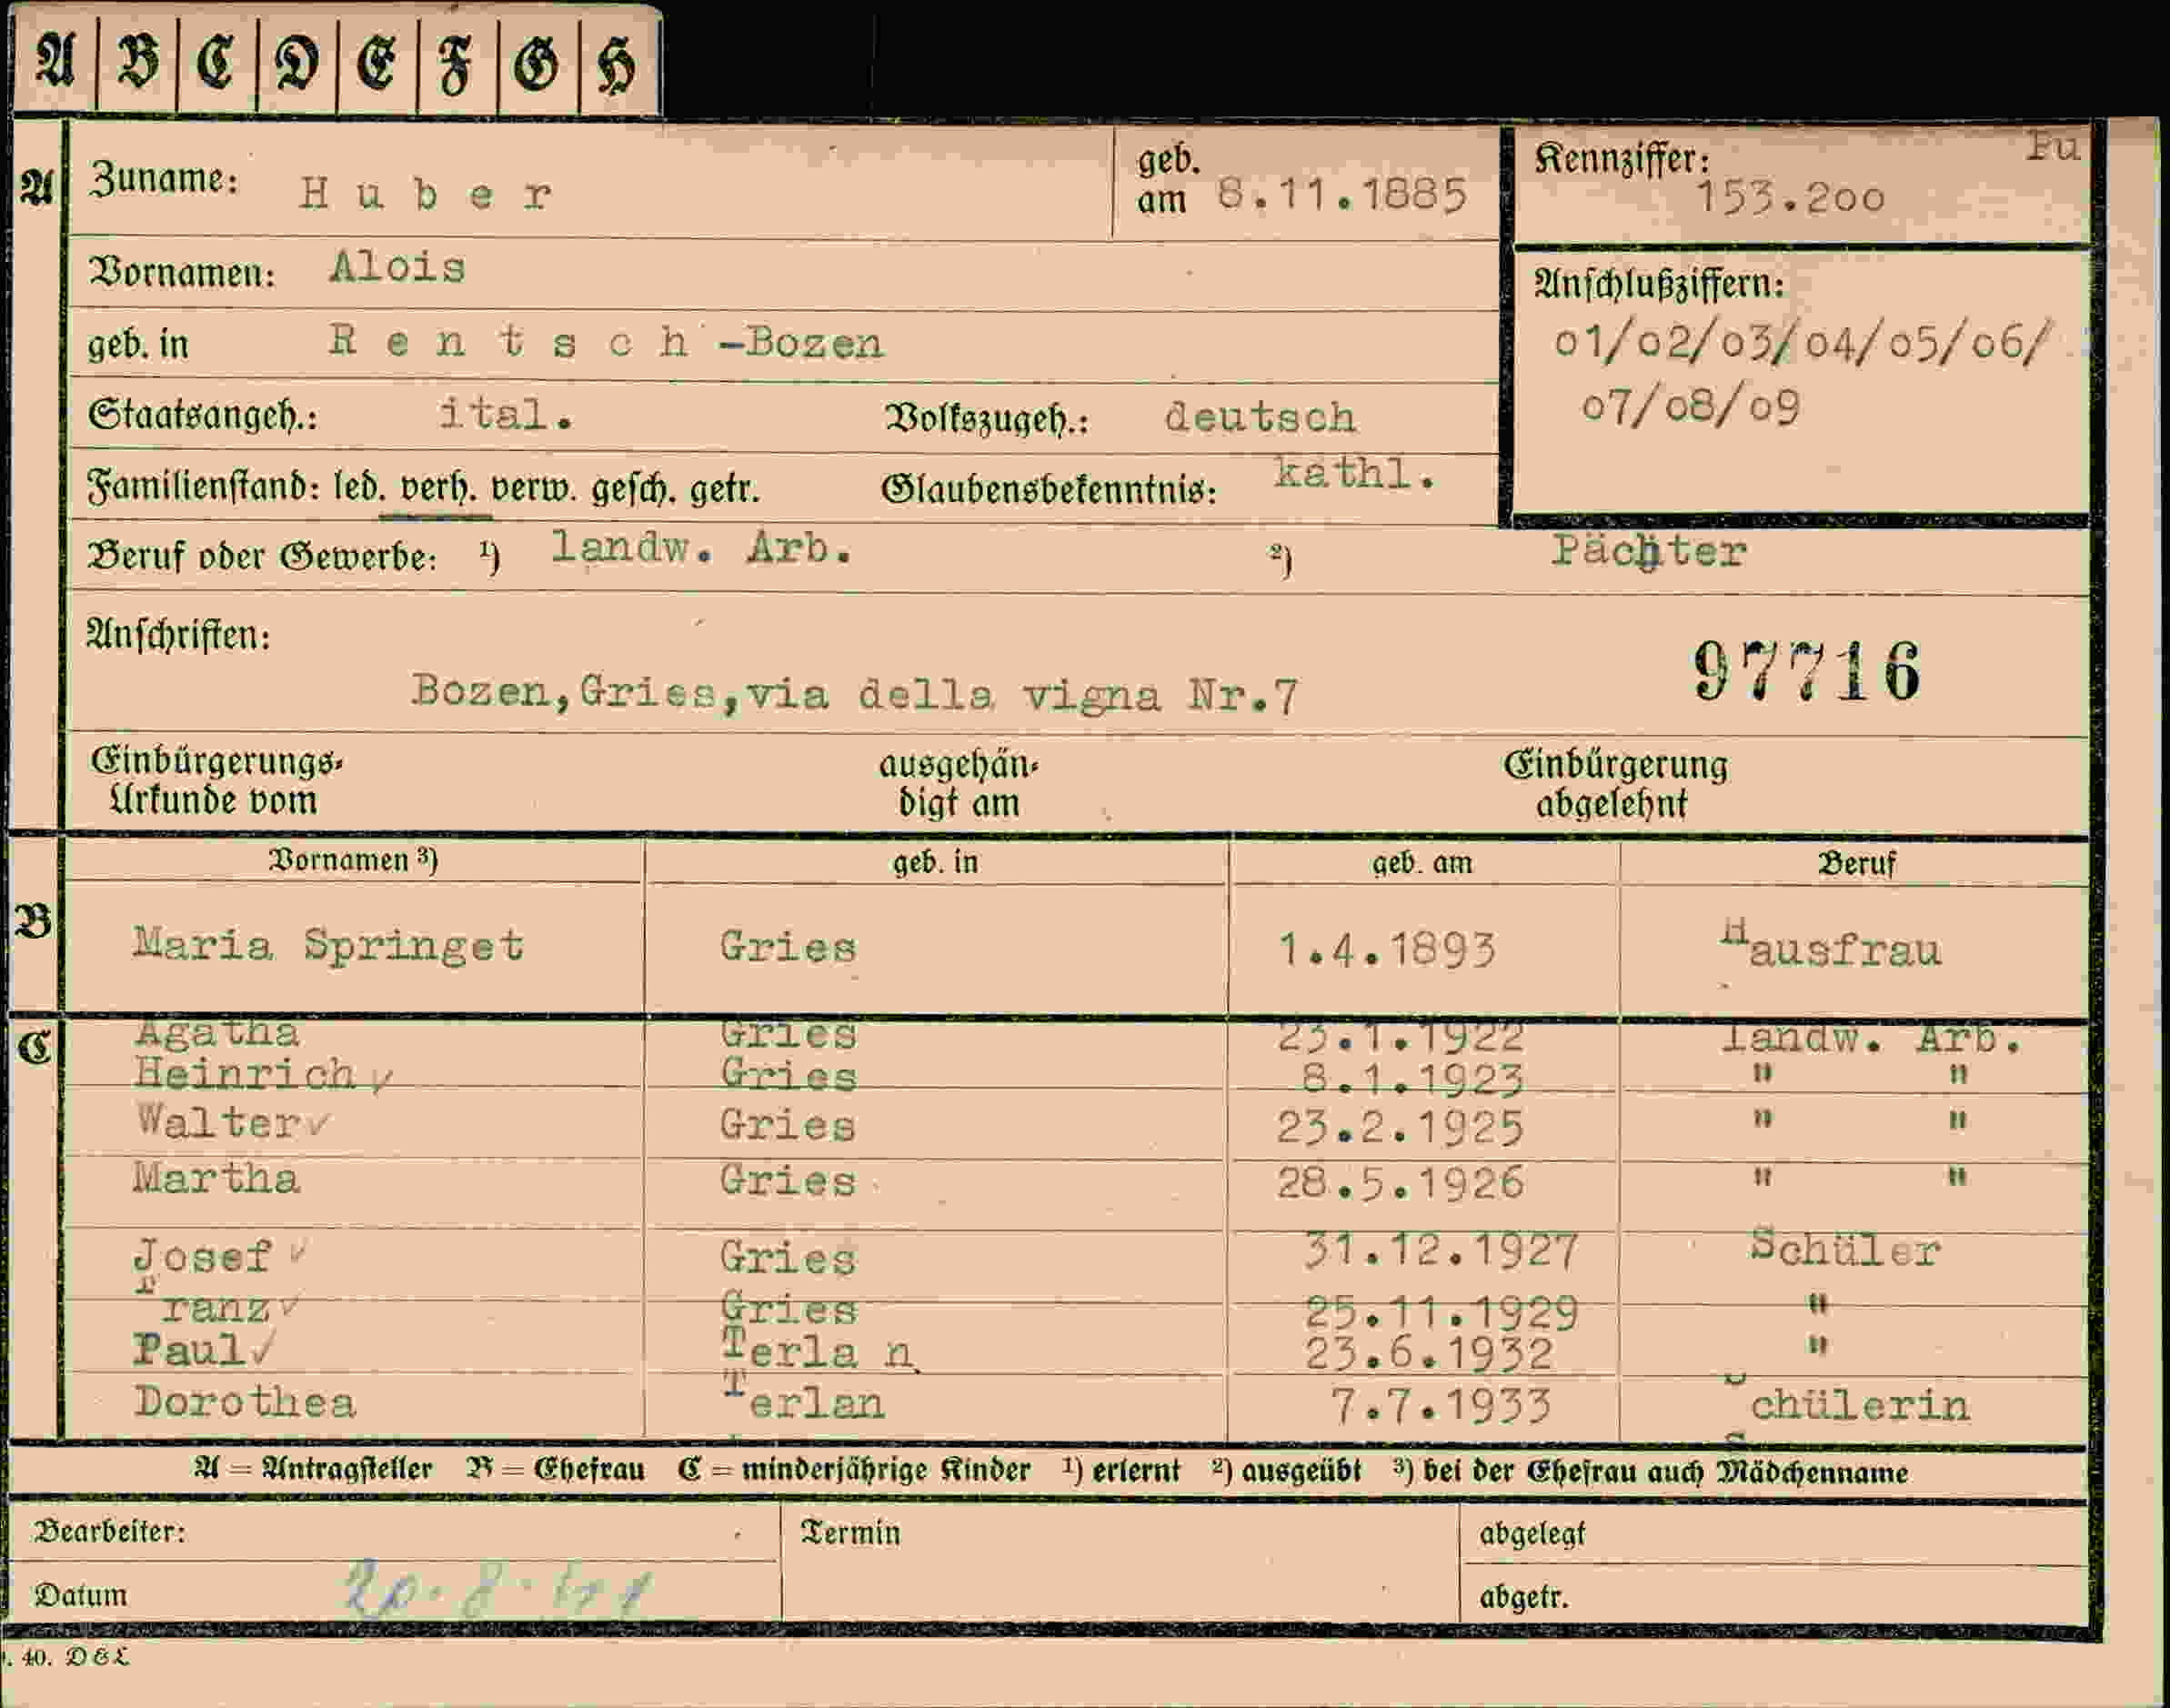 A B C D E F G H
A Zuname: Huber geb. am 8.11.1885 Kennziffer: 153.200 Pu
Vornamen: Alois
Anschlußziffern:
01/02/03/04/05/06/
07/08/09
geb. in Rentsch-Bozen
Staatsangeh.: ital. Volkszugeh.: deutsch
Familienstand: led. verh. verw. gesch. getr. Glaubensbekenntnis: kathl.
Beruf oder Gewerbe: ¹) landw. Arb. ²) Pächter
Anschriften:
97716
Bozen,Gries,via della vigna Nr.7
Einbürgerungs- Urkunde vom ausgehän- digt am Einbürgerung abgelehnt
Vornamen ³) geb. in geb. am Beruf
B Maria Springet Gries 1.4.1893 Hausfrau
C Agatha Gries 23.1.1922 landw. Arb.
Heinrich ✓ Gries 8.1.1923 " "
Walter ✓ Gries 23.2.1925 " "
Martha Gries 28.5.1926 " "
Josef ✓ Gries 31.12.1927 Schüler
Franz ✓ Gries 25.11.1929 "
Paul ✓ Terla n 23.6.1932 "
Dorothea Terlan 7.7.1933 Schülerin
A = Antragsteller B = Ehefrau C = minderjährige Kinder ¹) erlernt ²) ausgeübt ³) bei der Ehefrau auch Mädchenname
Bearbeiter: Termin abgelegt
Datum 20.8. abgetr.
. 40. D & L